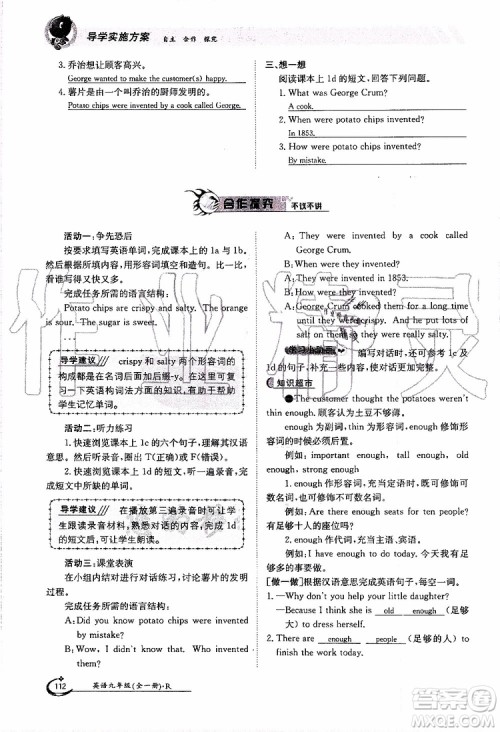 导学实施方案 自主 合作 探究
3. 乔治想让顾客高兴。
George wanted to make the customer(s) happy.
4. 薯片是由一个叫乔治的厨师发明的。
Potato chips were invented by a cook called George.
三、想一想
阅读课本上 1d 的短文，回答下列问题。
1. What was George Crum?
A cook.
2. When were potato chips invented?
In 1853.
3. How were potato chips invented?
By mistake.
合作探究 不议不讲
活动一：争先恐后
按要求填写英语单词，完成课本上的 1a 和 1b。
看谁写得又快又好，用形容词写句子。比一比，
完成任务所需的语言结构：
Potato chips are crispy and salty. The orange
is sour. The sugar is sweet.
导学建议 crispy 和 salty 两个形容词的
构成都是在名词后面加缀-y。在这里可复
习一下英语构词法方面的知识，有助于帮助
学生记忆单词。
活动二：听力练习
1. 快速浏览课本上 1c 的六个句子，写出其汉语
意思。听一遍录音，用 T(正确)或 F(错误)填空。
2. 快速浏览课本上 1d 的短文，听一遍录音，完
成短文中所缺的单词。
导学建议 在播放第三遍录音时可让学
生跟读录音材料，熟悉对话后，可让完成 1d
的短文后，可让学生朗读。
活动三：课堂表演
在小组内结对进行对话练习，讨论薯片的发明
过程。
完成任务所需的语言结构：
A: Did you know potato chips were invented
by mistake?
B: Wow, I didn't know that. Who invented
them?
A: They were invented by a cook called
George Crum.
B: When were they invented?
A: They were invented in 1853.
B: How were they invented?
A: George Crum cooked them for a long time
until they were crispy. And he put lots of
salt on them so they were really salty.
编写对话时，可参考 1c 及
1d 的句子。补充一些内容，使对话更加完整。
知识超市
❶The customer thought the potatoes were not
thin enough. 顾客认为土豆不够薄。
enough 为副词，可修饰形容词或副词，放在所
修饰的形容词或副词之后。
例如：important enough, tall enough, well
enough, strong enough
1. enough 作形容词，充当定语，可修饰可数或
不可数名词，放在所修饰的名词前后均可。
例如：Are there enough seats for ten people?
有足够十人的座位吗？
2. enough 作代词，充当主语、宾语。
例如：I have enough to do today.
今天我有足够的工作要做。
[做一做]根据汉语意思完成英语句子，每空一词。
1. —Why don't you help your little daughter?
—Because I think she is old enough (足够
大) to dress herself.
2. There are enough people (足够的人) to do
the work.
112 英语九年级(全一册)·R